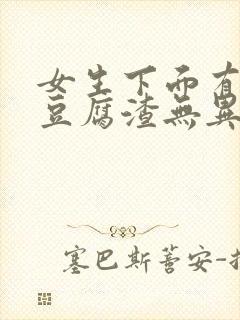 女生下面有
豆腐渣無異
塞巴斯蒂安-